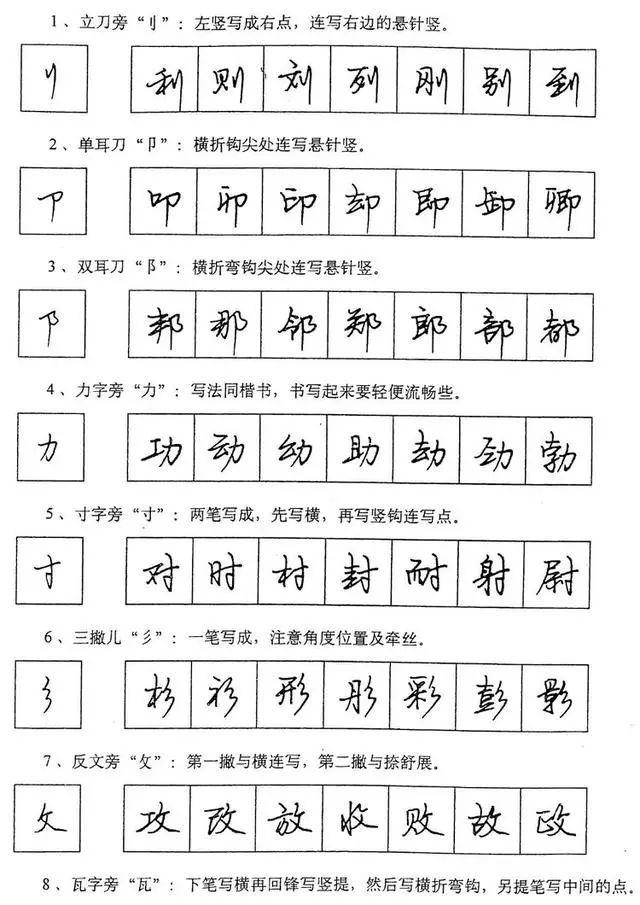 1、立刀旁“刂”：左竖写成右点，连写右边的悬针竖。
刂 利 则 刘 列 刚 别 到
2、单耳刀“卩”：横折钩尖处连写悬针竖。
卩 叩 卯 印 却 即 卸 卿
3、双耳刀“阝”：横折弯钩尖处连写悬针竖。
阝 邦 那 邻 郑 郎 部 都
4、力字旁“力”：写法同楷书，书写起来要轻便流畅些。
力 功 动 幼 助 劫 劲 勃
5、寸字旁“寸”：两笔写成，先写横，再写竖钩连写点。
寸 对 时 村 封 耐 射 尉
6、三撇儿“彡”：一笔写成，注意角度位置及牵丝。
彡 杉 衫 形 彤 彩 彭 影
7、反文旁“攵”：第一撇与横连写，第二撇与捺舒展。
攵 攻 改 放 收 败 故 政
8、瓦字旁“瓦”：下笔写横再回锋写竖提，然后写横折弯钩，另提笔写中间的点.